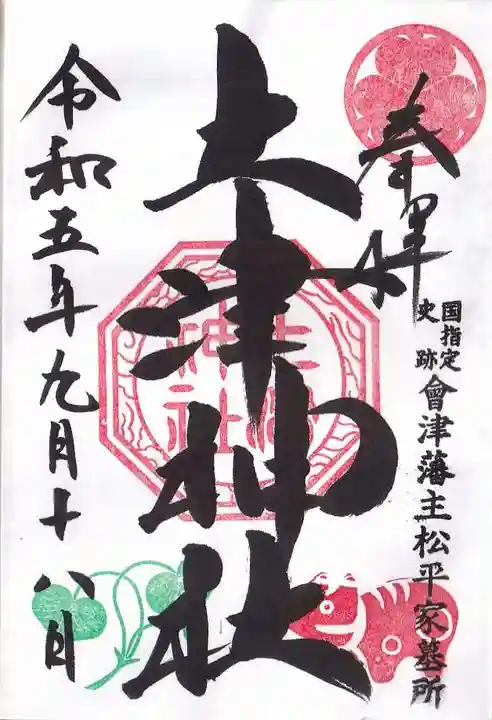 奉拝
国指定
史跡
會津藩主松平家墓所
土津神社
令和五年九月十八日
土津
神社